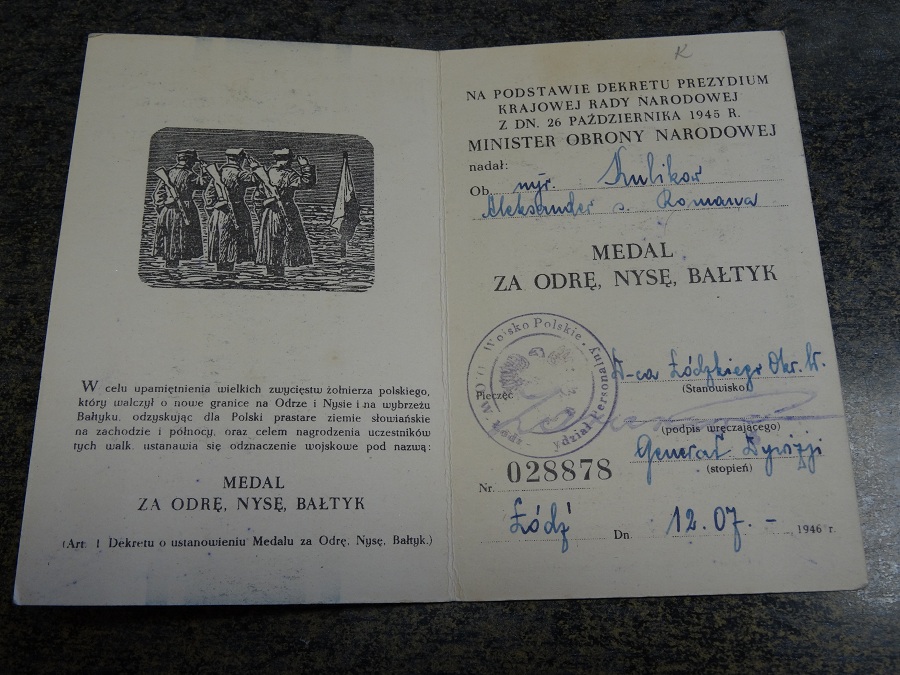 W celu upamiętnienia wielkich zwycięstw żołnierza polskiego,
który walczył o nowe granice na Odrze i Nysie i na wybrzeżu
Bałtyku, odzyskując dla Polski prastare ziemie słowiańskie
na zachodzie i północy, oraz celem nagrodzenia uczestników
tych walk, ustanawia się odznaczenie wojskowe pod nazwą:
MEDAL
ZA ODRĘ, NYSĘ, BAŁTYK
(Art. 1 Dekretu o ustanowieniu Medalu za Odrę, Nysę, Bałtyk.)
K
NA PODSTAWIE DEKRETU PREZYDIUM
KRAJOWEJ RADY NARODOWEJ
Z DN. 26 PAŹDZIERNIKA 1945 R.
MINISTER OBRONY NARODOWEJ
nadał:
Ob. mjr. Kulikow
Aleksander s. Romana
MEDAL
ZA ODRĘ, NYSĘ, BAŁTYK
Wojsko Polskie
Łódź
Wydział Personalny
D-ca Łódzkiego Okr. W.
Pieczęć
(Stanowisko)
(podpis wręczającego)
Generał Dywizji
(stopień)
Nr. 028878
Łódź Dn. 12.07.- 1946 r.